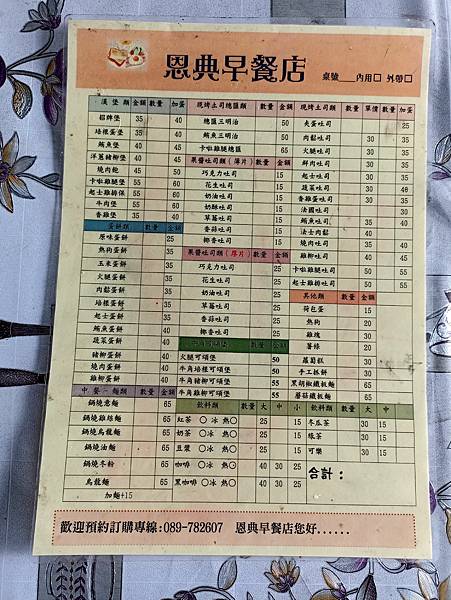 恩典早餐店
桌號____內用□ 外帶□
漢堡類 金額 數量 加蛋
招牌堡 35
培根蛋堡 35 40
鮪魚堡 35 40
洋蔥豬柳堡 40 45
燒肉鮑 40 45
卡啦雞腿堡 55 60
起士雞排保 55 60
牛肉堡 55 60
香雞堡 35 40
蛋餅類 數量 金額
原味蛋餅 25
熱狗蛋餅 35
玉米蛋餅 35
火腿蛋餅 35
肉鬆蛋餅 35
培根蛋餅 35
起士蛋餅 35
鮪魚蛋餅 35
蔬菜蛋餅
豬柳蛋餅
燒肉蛋餅
雞柳蛋餅
中餐-麵類 數量 金額
鍋燒意麵 65
鍋燒雞絲麵 65
鍋燒烏龍麵 65
鍋燒油麵 65
鍋燒冬粉 65
烏龍麵 65
加麵+15
現烤土司總匯類 數量 金額
總匯三明治 50
鮪魚三明治 50
卡啦雞腿總匯 65
果醬吐司類(薄片) 數量 金額
巧克力吐司 15
花生吐司 15
奶油吐司 15
奶酥吐司 15
草莓吐司 15
香蒜吐司 15
椰香吐司 15
果醬吐司類(厚片) 數量 金額
巧克力吐司 25
花生吐司 25
奶油吐司 25
草莓吐司 25
香蒜吐司 25
椰香吐司 25
火腿可頌堡 50
牛角培根可頌堡 50
牛角豬柳可頌堡 55
牛角雞柳可頌堡 55
飲料類 數量 大 中 小
紅茶 ○冰 熱○ 30 15
奶茶 ○冰 熱○ 30 25 15
豆漿 ○冰 熱○ 30 25 15
咖啡 ○冰 熱○ 40 30 25
黑咖啡 ○冰 熱○ 40 30 25
現烤土司類 數量 單價 數量 加蛋
夾蛋吐司 25
肉鬆吐司 30 35
火腿吐司 30 35
鮮肉吐司 30 35
起士吐司 30 35
蔬菜吐司 30
香雞蛋吐司 30 35
法國吐司 30
鮪魚吐司
法士肉鬆
燒肉吐司
雞柳吐司
卡啦雞腿吐司 50 55
起士雞排吐司 50 55
其他類 數量 金額
荷包蛋 10
熱狗 20
雞塊 30
薯條 20
蘿蔔糕 30
手工抓餅 30
黑胡椒鐵板麵 60
蘑菇鐵板麵 60
飲料類 數量 大 中
冬瓜茶 30 15
綠茶 30 15
可樂 30 15
合計：
歡迎預約訂購專線:089-782607 恩典早餐店您好......